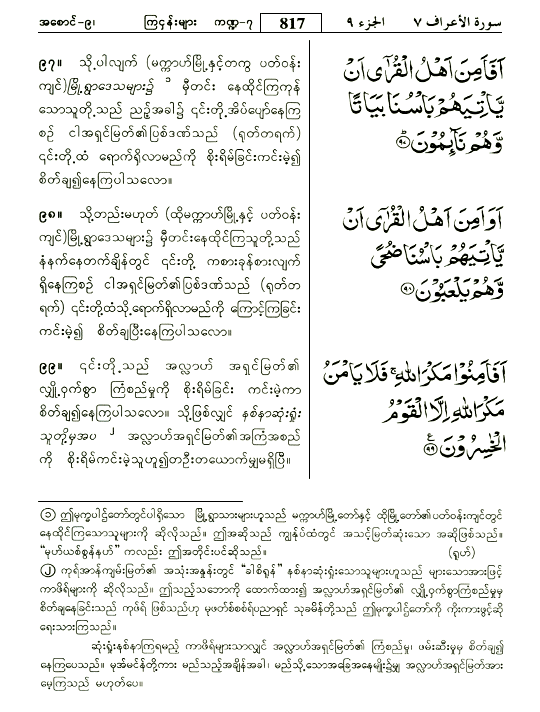 အစောင်-၉၊ ကြငှန်းများ ကဏ္ဍ-၇ 817 الجزء ٩ سورة الأعراف ٧
၉၇။ သို့ပါလျက် (မက္ကာဟ်မြို့နှင့်တကွ ပတ်ဝန်း
ကျင်)မြို့ရွာဒေသများ၌ ၁ မှီတင်း နေထိုင်ကြကုန်
သောသူတို့သည် ညဉ့်အခါ၌ ၎င်းတို့အိပ်ပျော်နေကြ
စဉ် ငါအရှင်မြတ်၏ပြစ်ဒဏ်သည် (ရုတ်တရက်)
၎င်းတို့ထံ ရောက်ရှိလာမည်ကို စိုးရိမ်ခြင်းကင်းမဲ့၍
စိတ်ချ၍နေကြပါသလော။
اَفَاَمِنَ اَهْلُ الْقُرٰۤى اَنْ
يَّاْتِيَهُمْ بَاْسُنَا بَيَاتًا
وَّهُمْ نَآئِمُوْنَ ۹۷
၉၈။ သို့တည်းမဟုတ် (ထိုမက္ကာဟ်မြို့နှင့် ပတ်ဝန်း
ကျင်)မြို့ရွာဒေသများ၌ မှီတင်းနေထိုင်ကြသူတို့သည်
နံနက်နေတက်ချိန်တွင် ၎င်းတို့ ကစားခုန်စားလျက်
ရှိနေကြစဉ် ငါအရှင်မြတ်၏ပြစ်ဒဏ်သည် (ရုတ်တ
ရက်) ၎င်းတို့ထံသို့ရောက်ရှိလာမည်ကို ကြောင့်ကြခြင်း
ကင်းမဲ့၍ စိတ်ချပြီးနေကြပါသလော။
اَوَاَمِنَ اَهْلُ الْقُرٰۤى اَنْ
يَّاْتِيَهُمْ بَاْسُنَا ضُحًى
وَّهُمْ يَلْعَبُوْنَ ۹۸
၉၉။ ၎င်းတို့သည် အလ္လာဟ် အရှင်မြတ်၏
လျှို့ဝှက်စွာ ကြံစည်မှုကို စိုးရိမ်ခြင်း ကင်းမဲ့ကာ
စိတ်ချ၍နေကြပါသလော။ သို့ဖြစ်လျှင် နစ်နာဆုံးရှုံး
သူတို့မှအပ ၂ အလ္လာဟ်အရှင်မြတ်၏အကြံအစည်
ကို စိုးရိမ်ကင်းမဲ့သူဟူ၍တဦးတယောက်မျှမရှိပြီ။
اَفَاَمِنُوْا مَكْرَ اللّٰهِ ۚ فَلَا يَاْمَنُ
مَكْرَ اللّٰهِ اِلَّا الْقَوْمُ
الْخٰسِرُوْنَ ۹۹
(၁) ဤမုက္ခပါဌ်တော်တွင်ပါရှိသော မြို့ရွာသားများဟူသည် မက္ကာဟ်မြို့တော်နှင့် ထိုမြို့တော်၏ပတ်ဝန်းကျင်တွင်
နေထိုင်ကြသောသူများကို ဆိုလိုသည်။ ဤအဆိုသည် ကျွန်ုပ်ထံတွင် အသင့်မြတ်ဆုံးသော အဆိုဖြစ်သည်။
"မုဟ်ယစ်စွန်နဟ်" ကလည်း ဤအတိုင်းပင်ဆိုသည်။ (ရူဟ်)
(၂) ကုရ်အာန်ကျမ်းမြတ်၏ အသုံးအနှုန်းတွင် "ခါစိရူန်" နစ်နာဆုံးရှုံးသောသူများဟူသည် များသောအားဖြင့်
ကာဖိရ်များကို ဆိုလိုသည်။ ဤသည့်သဘောကို ထောက်ထား၍ အလ္လာဟ်အရှင်မြတ်၏ လျှို့ဝှက်စွာကြံစည်မှုမှ
စိတ်ချနေခြင်းသည် ကုဖိရ် ဖြစ်သည်ဟု မုဖတ်စ်စစ်ရ်ပညာရှင် သုခမိန်တို့သည် ဤမုက္ခပါဌ်တော်ကို ကိုးကားဖွင့်ဆို
ရေးသားကြသည်။
ဆုံးရှုံးနစ်နာကြရမည့် ကာဖိရ်များသာလျှင် အလ္လာဟ်အရှင်မြတ်၏ ကြံစည်မှု၊ ဖမ်းဆီးမှုမှ စိတ်ချ၍
နေကြပေသည်။ မုအ်မင်န်တို့ကား မည်သည့်အချိန်အခါ၊ မည်သို့သောအခြေအနေမျိုး၌မျှ အလ္လာဟ်အရှင်မြတ်အား
မေ့ကြသည် မဟုတ်ပေ။